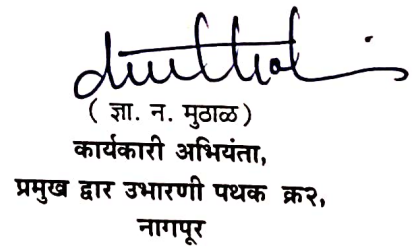 ( ज्ञा. न. मुठाळ )
कार्यकारी अभियंता,
प्रमुख द्वार उभारणी पथक क्र२,
नागपूर